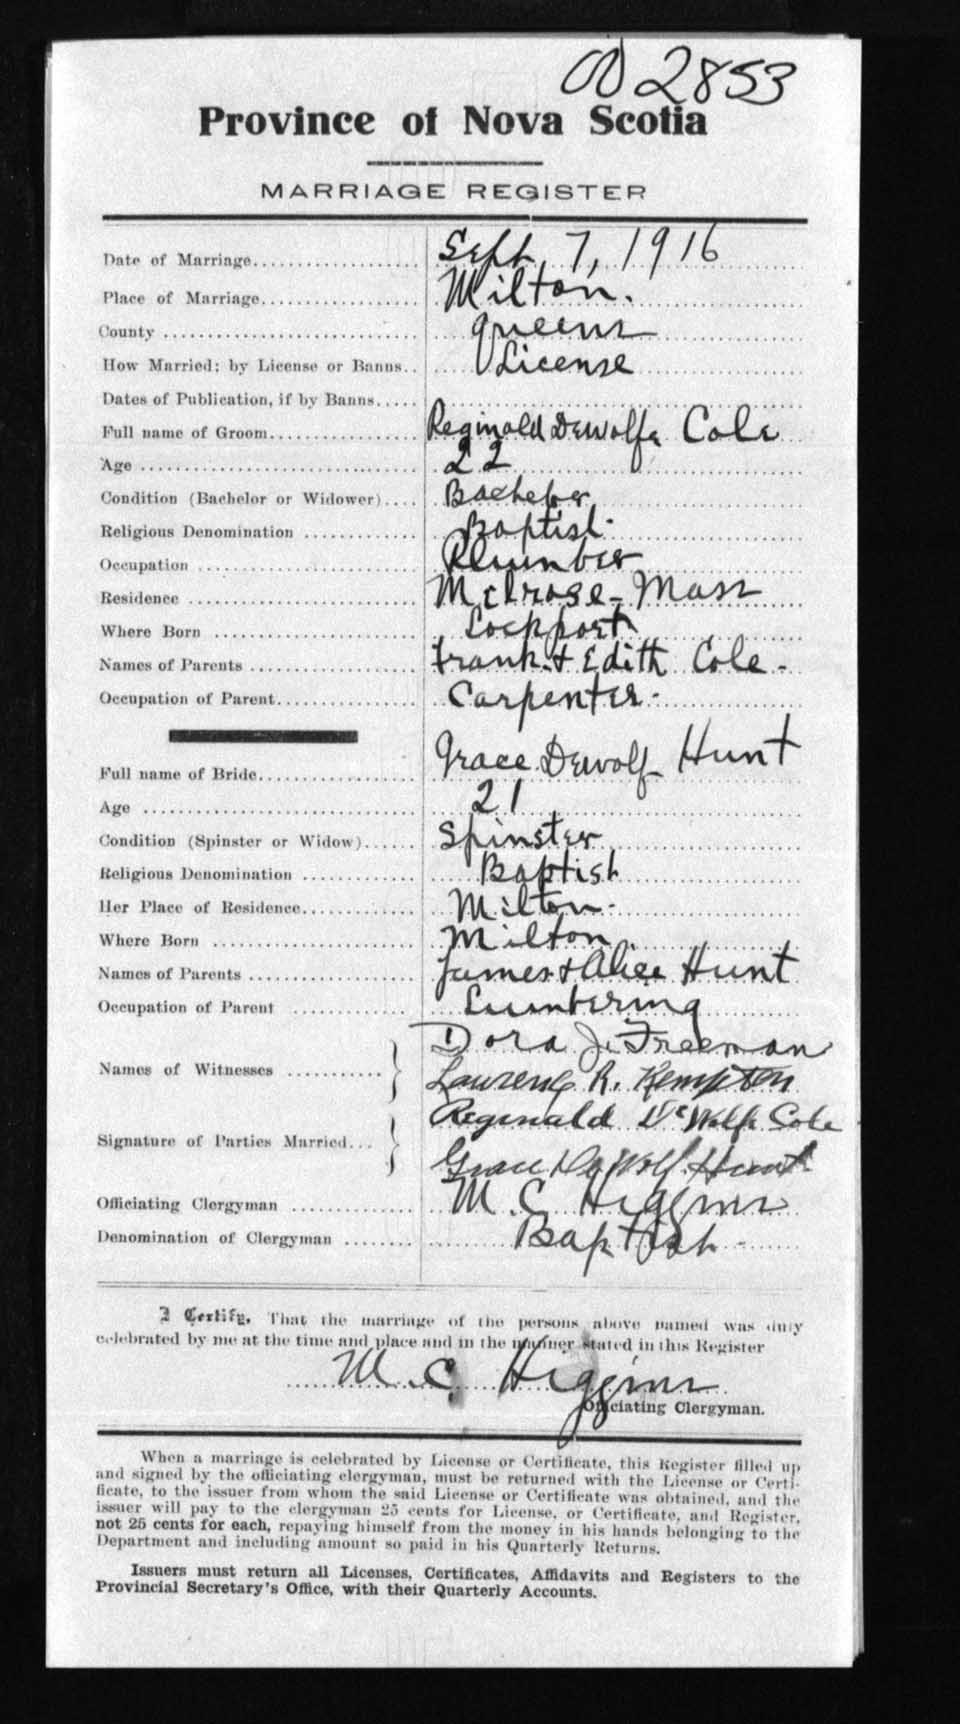 002853
Province of Nova Scotia
MARRIAGE REGISTER
Date of Marriage Sept. 7, 1916
Place of Marriage Milton.
County Queens
How Married: by License or Banns License
Dates of Publication, if by Banns
Full name of Groom Reginald DeWolfe Cole
Age 22
Condition (Bachelor or Widower) Bachelor
Religious Denomination Baptist
Occupation Plumber
Residence Melrose - Mass
Where Born Lockport
Names of Parents Frank & Edith Cole -
Occupation of Parent Carpenter -
Full name of Bride Grace Dewolf Hunt
Age 21
Condition (Spinster or Widow) Spinster
Religious Denomination Baptist
Her Place of Residence Milton -
Where Born Milton
Names of Parents James & Alice Hunt
Occupation of Parent Lumbering
Names of Witnesses Dora J. Freeman
Lawrence R. Kempton
Signature of Parties Married Reginald DeWolfe Cole
Grace DeWolf Hunt
Officiating Clergyman M. C. Higgins
Denomination of Clergyman Baptist -
I Certify, That the marriage of the persons above named was duly
celebrated by me at the time and place and in the manner stated in this Register
M. C. Higgins
Officiating Clergyman.
When a marriage is celebrated by License or Certificate, this Register filled up
and signed by the officiating clergyman, must be returned with the License or Certi-
ficate, to the issuer from whom the said License or Certificate was obtained, and the
issuer will pay to the clergyman 25 cents for License, or Certificate, and Register,
not 25 cents for each, repaying himself from the money in his hands belonging to the
Department and including amount so paid in his Quarterly Returns.
Issuers must return all Licenses, Certificates, Affidavits and Registers to the
Provincial Secretary's Office, with their Quarterly Accounts.